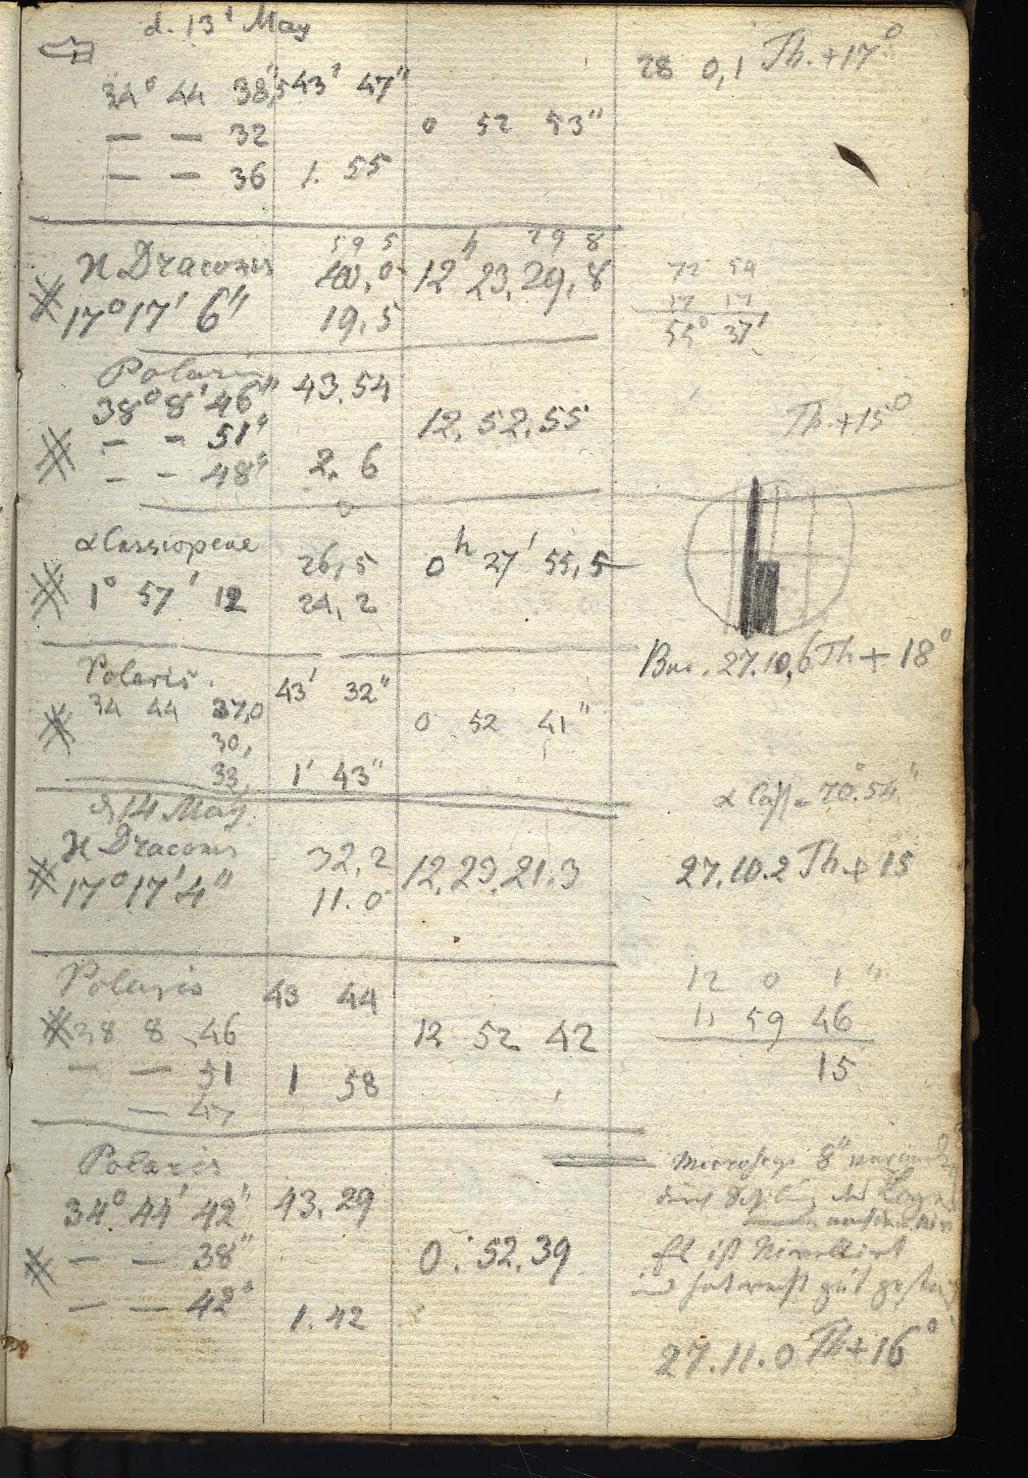 d. 13 May
34° 44 38,5 43' 47" 28 0,1 Th. +17°
— — 32 0 52 53"
— — 36 1. 55
59 5 h 29 8
ϰ Draconis 40,0 12 23, 29, 8 72 54
17° 17' 6" 19,5 17 17
55° 37'
Polaris 43. 54
38° 8' 46"
— — 51" 12. 52. 55 Th. +15°
— — 48" 2. 6
α Cassiopeae 26,5 0 h 27' 55,5
1° 57' 12 24,2
Polaris. 43' 32" Bar. 27. 10,6 Th + 18°
34 44 37,0 0 52 41"
30,
33, 1' 43"
14 May. α Cass = 70° 54"
ϰ Draconis 32,2 12. 23. 21. 3 27. 10. 2 Th + 15
17° 17' 4" 11. 0
Polaris 43 44 12 0 1"
38 8 46 12 52 42 11 59 46
— — 51 1 58 15
— 47
Polaris 8"
34° 44' 42" 43. 29
— — 38" 0. 52. 39 ist Nivellirt
— — 42" 1. 42 gut
27. 11. 0 Th + 16°